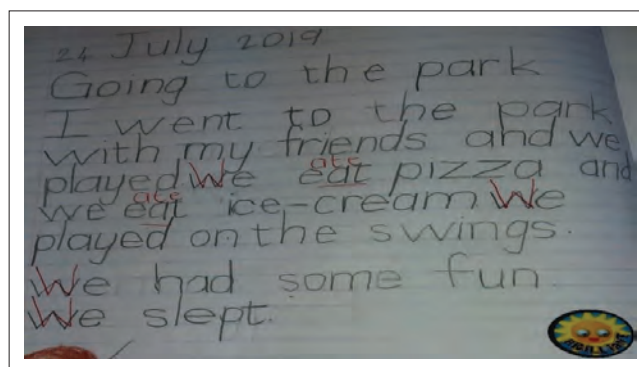 24 July 2019
Going to the park
I went to the park
with my friends and we
ate
played We eat pizza and
ate
we eat ice-cream We
played on the swings.
We had some fun.
We slept.
BRILLIANT